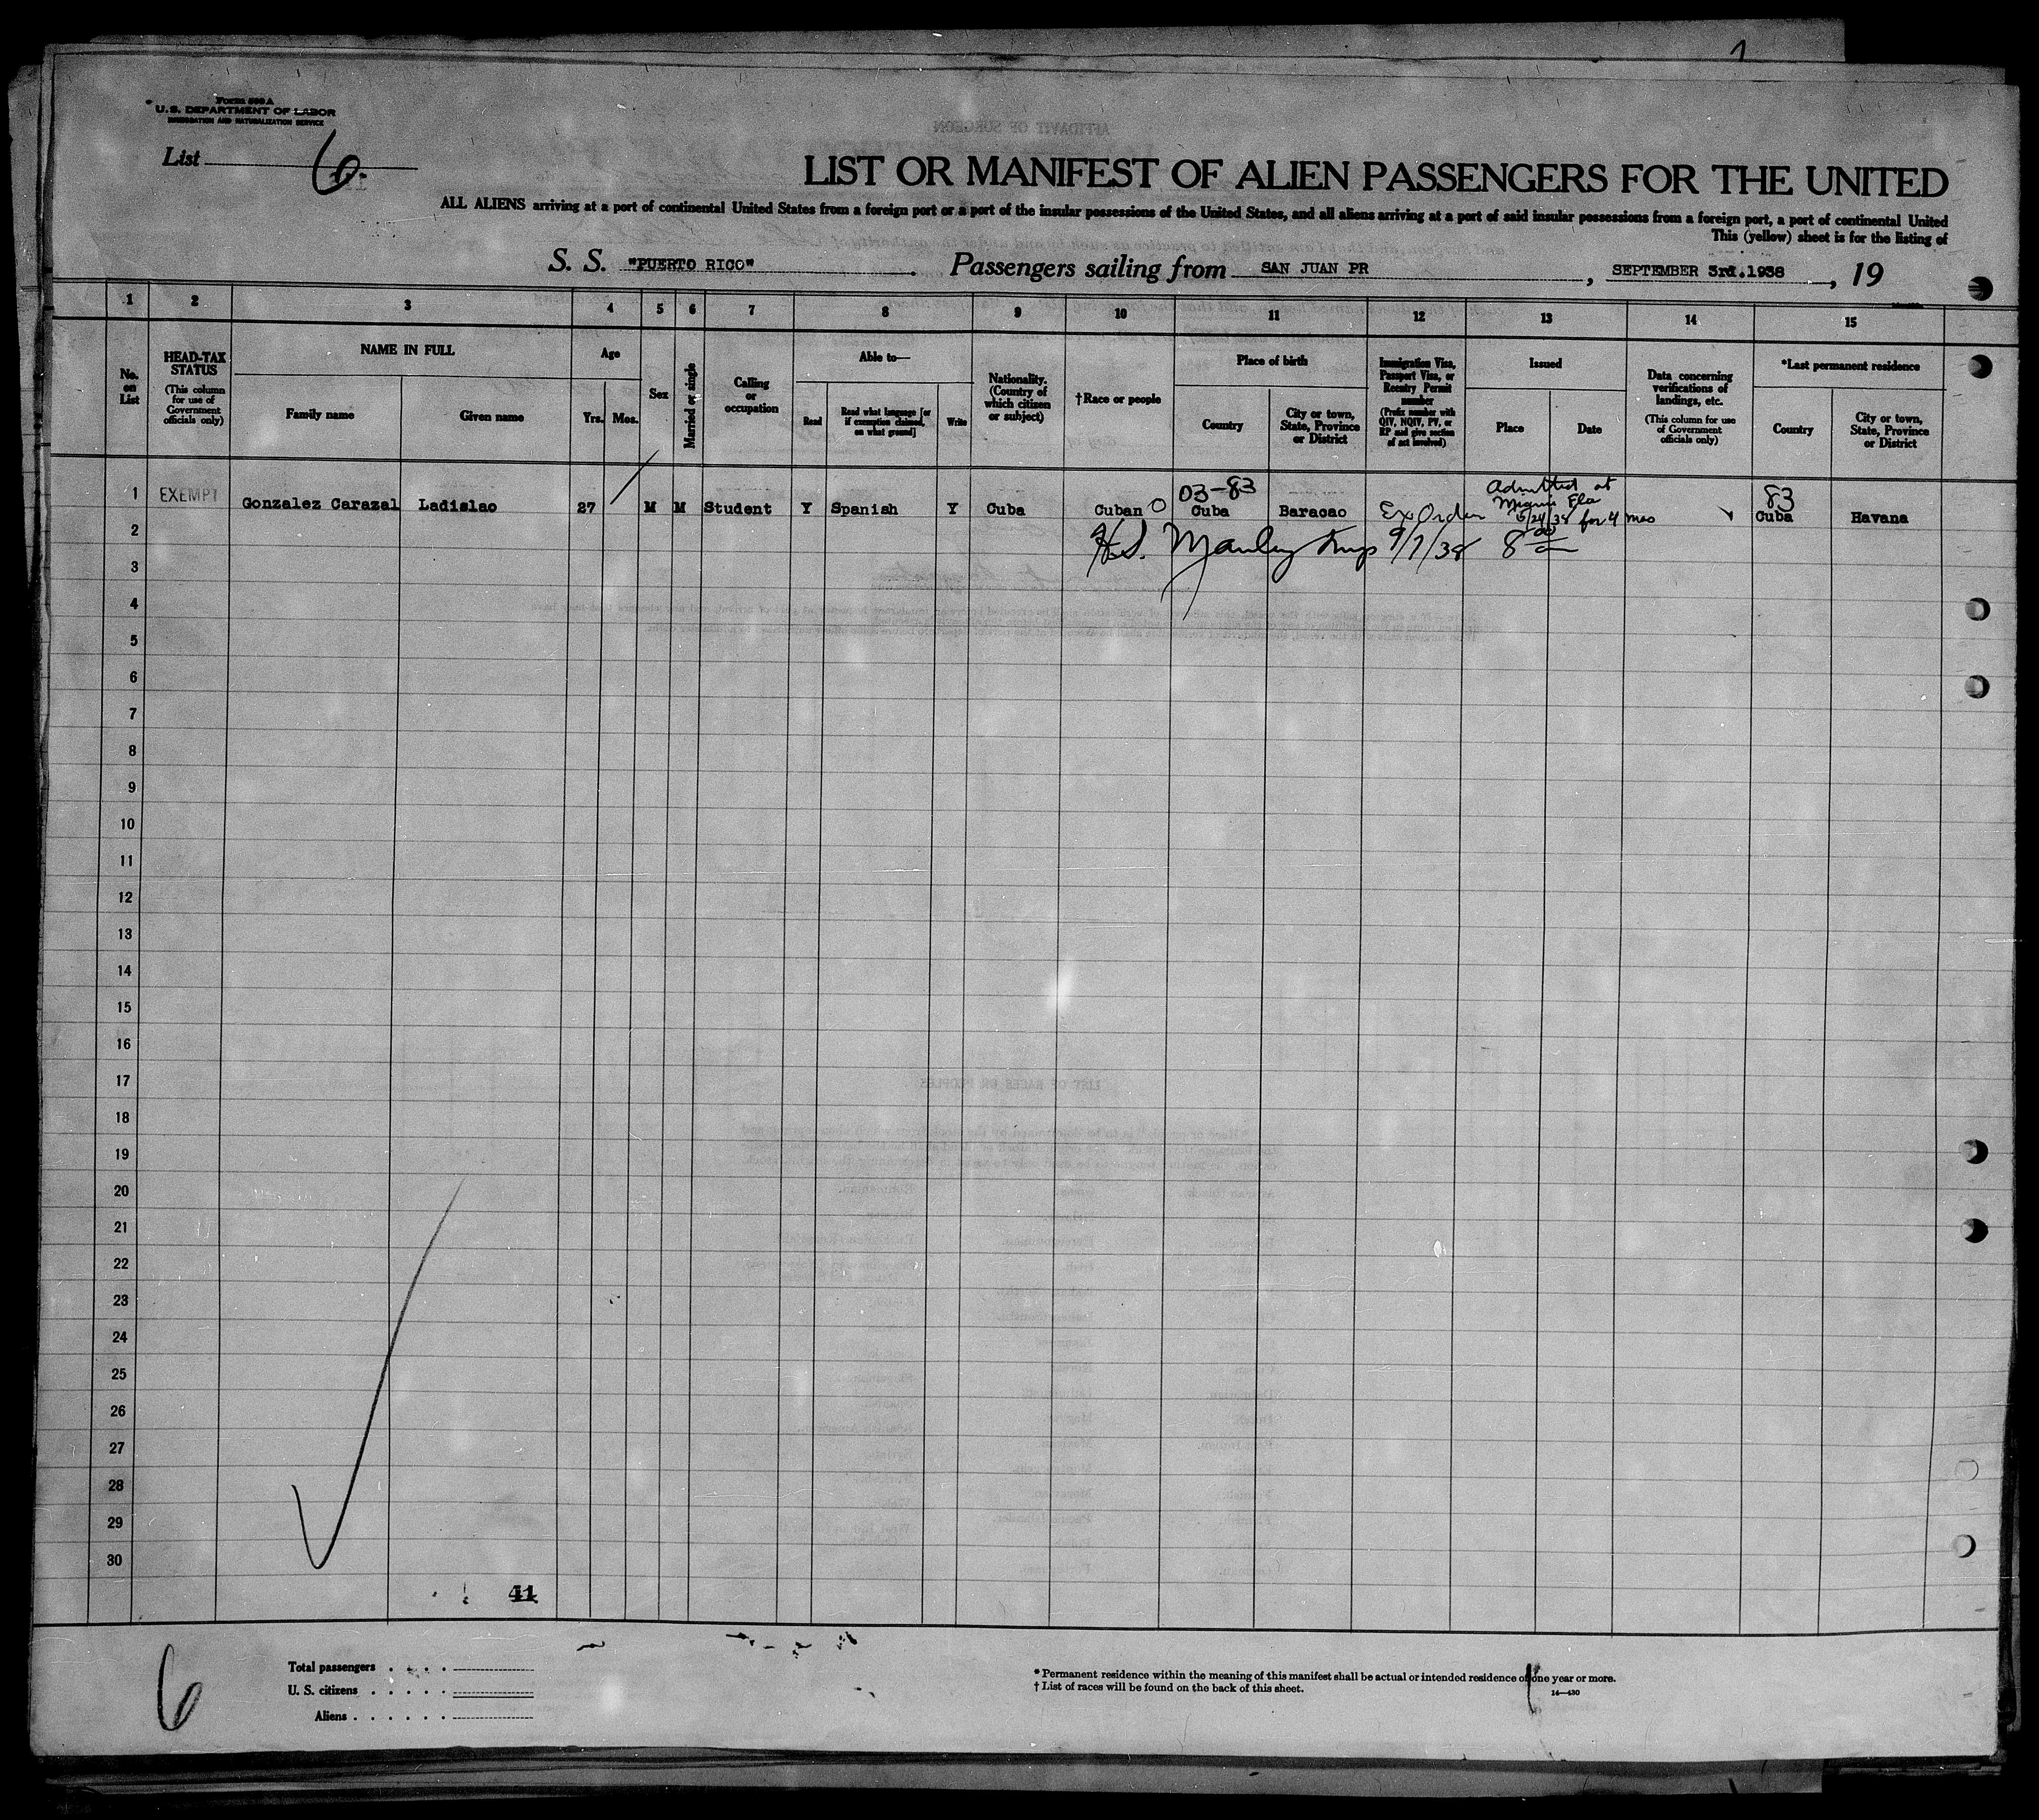 Form 500 A
U. S. DEPARTMENT OF LABOR
IMMIGRATION AND NATURALIZATION SERVICE
List 6
LIST OR MANIFEST OF ALIEN PASSENGERS FOR THE UNITED
ALL ALIENS arriving at a port of continental United States from a foreign port or a port of the insular possessions of the United States, and all aliens arriving at a port of said insular possessions from a foreign port, a port of continental United
This (yellow) sheet is for the listing of
S. S. "PUERTO RICO" . Passengers sailing from SAN JUAN PR , SEPTEMBER 3rd.1938 , 19
1 2 3 4 5 6 7 8 9 10 11 12 13 14 15
No. on List
HEAD-TAX STATUS
(This column for use of Government officials only)
NAME IN FULL
Family name
Given name
Age
Yrs.
Mos.
Sex
Married or single
Calling or occupation
Able to—
Read
Read what language [or if exemption claimed, on what ground]
Write
Nationality. (Country of which citizen or subject)
†Race or people
Place of birth
Country
City or town, State, Province or District
Immigration Visa, Passport Visa, or Reentry Permit number
(Prefix number with QIV, NQIV, PV, or RP and give section of act involved)
Issued
Place
Date
Data concerning verifications of landings, etc.
(This column for use of Government officials only)
*Last permanent residence
Country
City or town, State, Province or District
03-83
Admitted at
Miami Fla
5/24/38 for 4 mos
83
1 EXEMPT Gonzalez Carazal Ladislao 27 M M Student Y Spanish Y Cuba Cuban Cuba Baracao Ex Order Cuba Havana
2 H.S. Manley Insp 9/7/38 8 00
3
4
5
6
7
8
9
10
11
12
13
14
15
16
17
18
19
20
21
22
23
24
25
26
27
28
29
30
41
6
Total passengers . . . .
U. S. citizens . . . . .
Aliens . . . . . .
* Permanent residence within the meaning of this manifest shall be actual or intended residence of one year or more.
† List of races will be found on the back of this sheet.
14—430